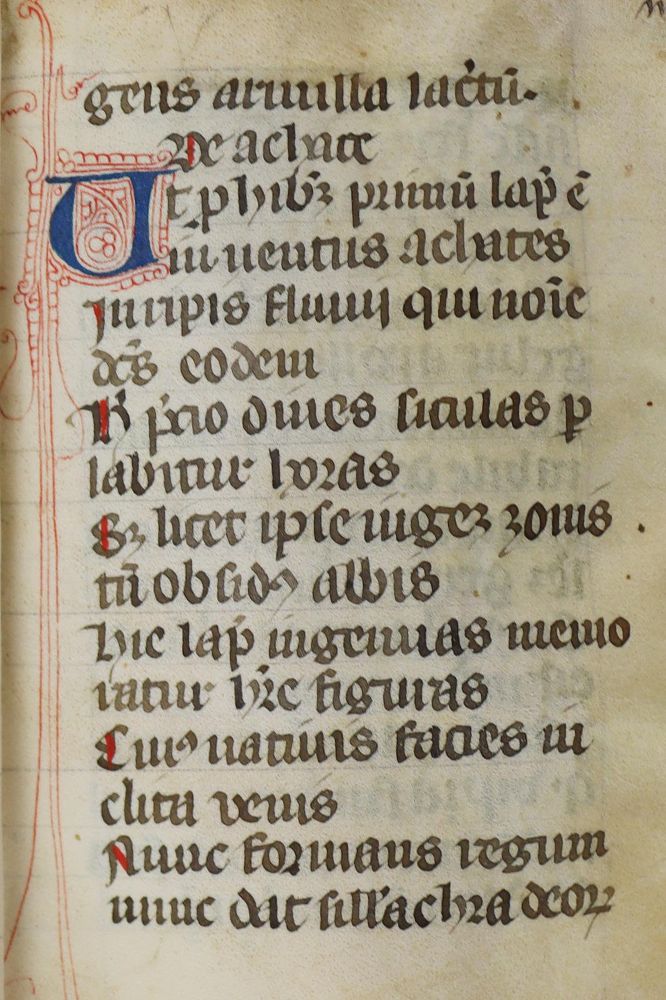 gens armilla lac̄tū.
De achate
Ut ꝑhibꝫ primū lap̄ ē
inuentus achates
In ripis fluuij qui noīe
dc̄s eodem
Hͦ p̄cio diues siculas ꝑ
labitur horas
Sꝫ licet ipse nigeꝫ zonis
tn̄ obsidꝰ albis
hic lap̄ ingenuas memo
ratur hr̄e figuras
Cuiꝰ natiuis facies in
clita venis
Nunc formans regum
nunc dat sill'achra deoꝝ